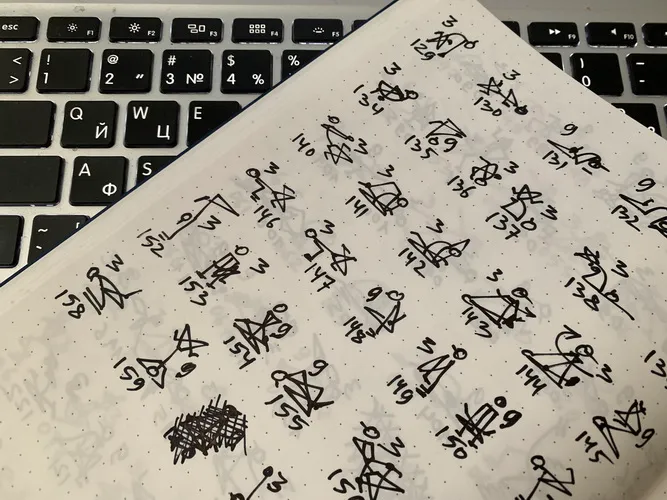 esc F1 F2 F3 F4 F5 F9 F10
< ! @ # $ % )
> 1 2 " 3 № 4 % 5 0
Q Й W Ц E
A Ф S
~
3
129
3
134
3
130
140 3
135 9
9
131
3
136
9
132
3
146
141
3
137
152 3
3
147
3
142
3
138
W
158
153 3
9
148
3
143
159 9
154 9
149 3
144 3
155 9
150 9
145 9
3
3